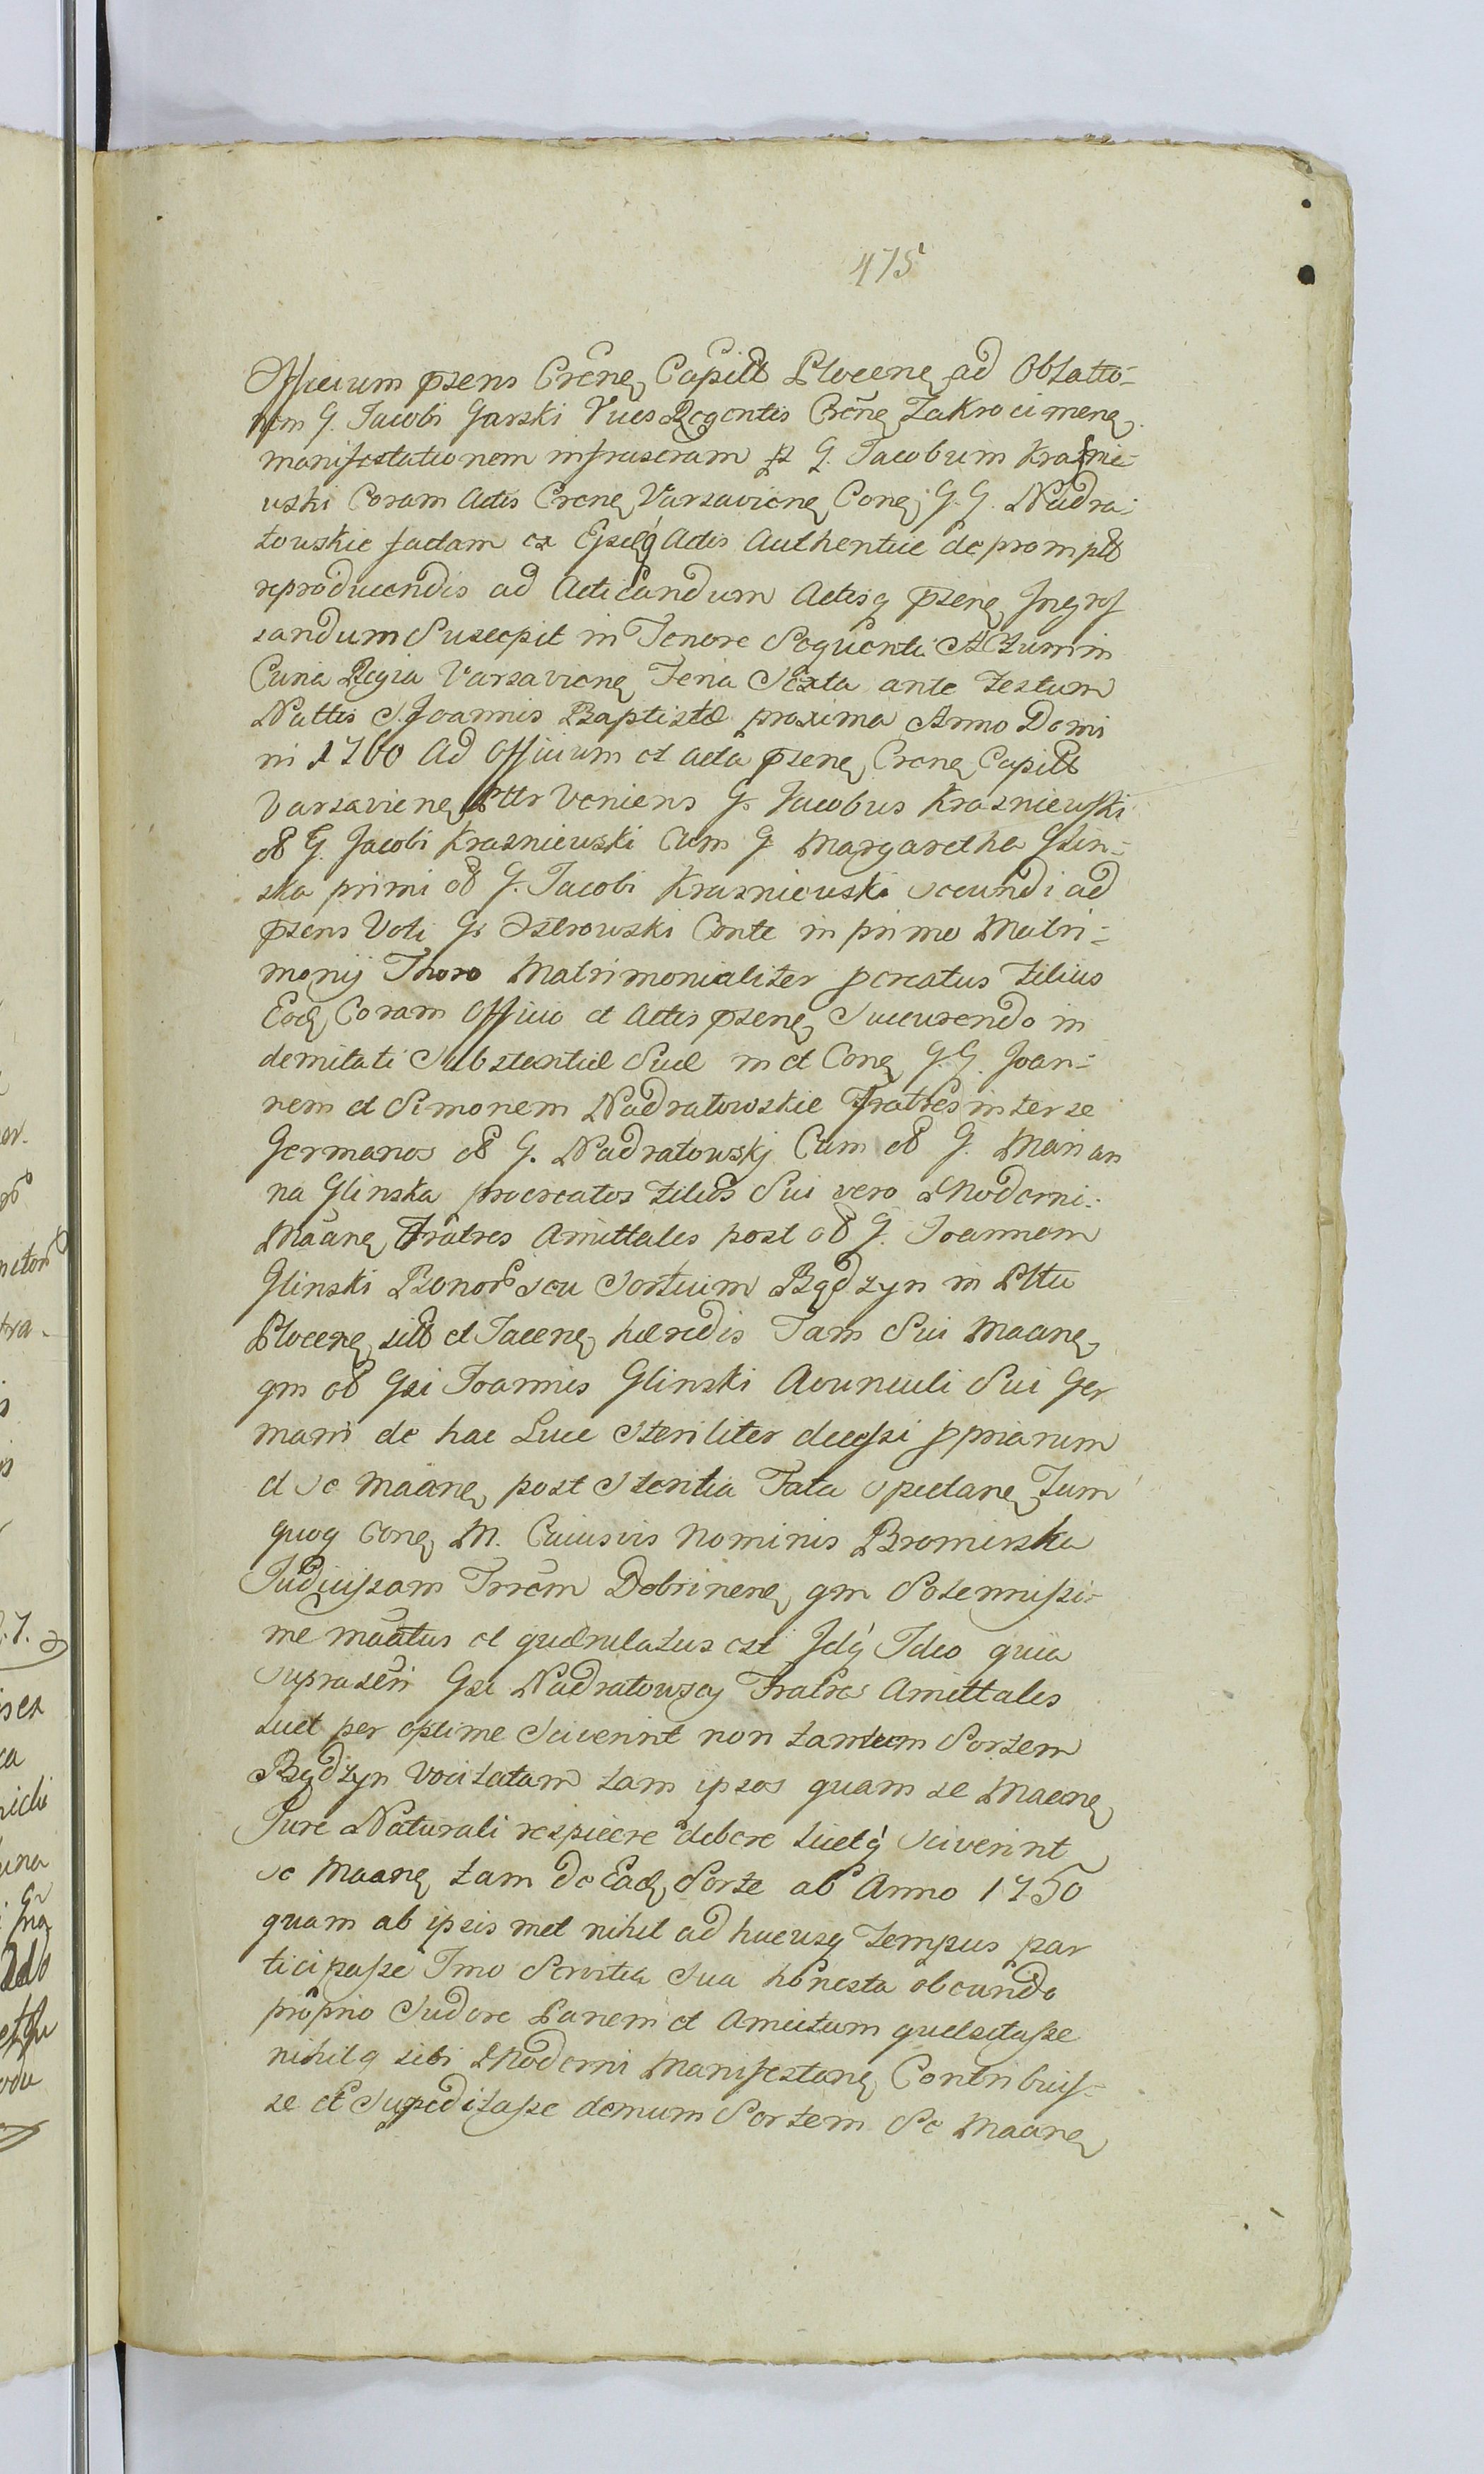 475
Officium pzens Crcne Capill Plocene ad Oblatio-
nem G. Jacobi Garski Vices Regentis Crcne Zakrocimene
manifestationem infrascram p G. Jacobum Krasnie-
wski Coram Actis Crcne Varsaviene Cone G.G. Nadra-
towskie factam ex Ejsdq Actis Authentice deprompt
reproducendis ad Acticandum Actisq pzene Ingros
sandum Suscepit in Tenore Sequenti Actum in
Curia Regia Varsaviene Feria Sexta ante Festum
Nattis S. Joannis Baptistæ proxima Anno Domi
ni 1760 Ad Officium et acta pzene Crcne Capill
Varsaviene Pltr Veniens G. Jacobus Krasniewski
ol G. Jacobi Krasniewski Cum G Margaretha Glin-
ska primi ol G. Jacobi Krasniewski secundi ad
pzens Voti G. Ostrowski Conte in primo Matri-
monij Thoro Matrimonialiter pcreatus Filius
Eoq Coram Officio et Actis pzene Succurendo in
demitati Substantiæ Suæ in et Cone G.G. Joan-
nem et Simonem Nadratowskie Fratres inter se
Germanos ol G. Nadratowskj Cum ol G. Marian
na Glinska procreatos Filios Sui vero Moderni
Maane Fratres Amittales post ol G. Joannem
Glinski Bonor seu Sortium Bądzyn in Pttu
Plocene sitt et Jacene hæredis Tam Sui Maane
qm ol Gsi Joannis Glinski Avunculi Sui Ger
mani de hac Luce Steriliter decessi ppriarum
et se Maane post Sterilia Fata spectane Tum
quoq cone M. Cuiusvis Nominis Bromirska
Judicissam Trrem Dobrinene qm Solemnissi-
me maatus et quærulatus est Idq Ideo quia
suprascri Gsi Nadratowscy Fratres Amittales
licet per optime Sciverint non tantum Sortem
Bądzyn Vocitatam tam ipsos quam se Maane
Jure Naturali respicere debere licetq sciverint
se Maane tam de Eadq Sorte ab Anno 1750
quam ab ipsis met nihil ad hucusq Tempus par
ticipasse Imo Servitia Sua honesta obeundo
proprio Sudore Panem et Amictum quæsitasse
nihilq sibi Moderni Manifestane Contribuis-
se et Supeditasse demum Sortem Se Maane